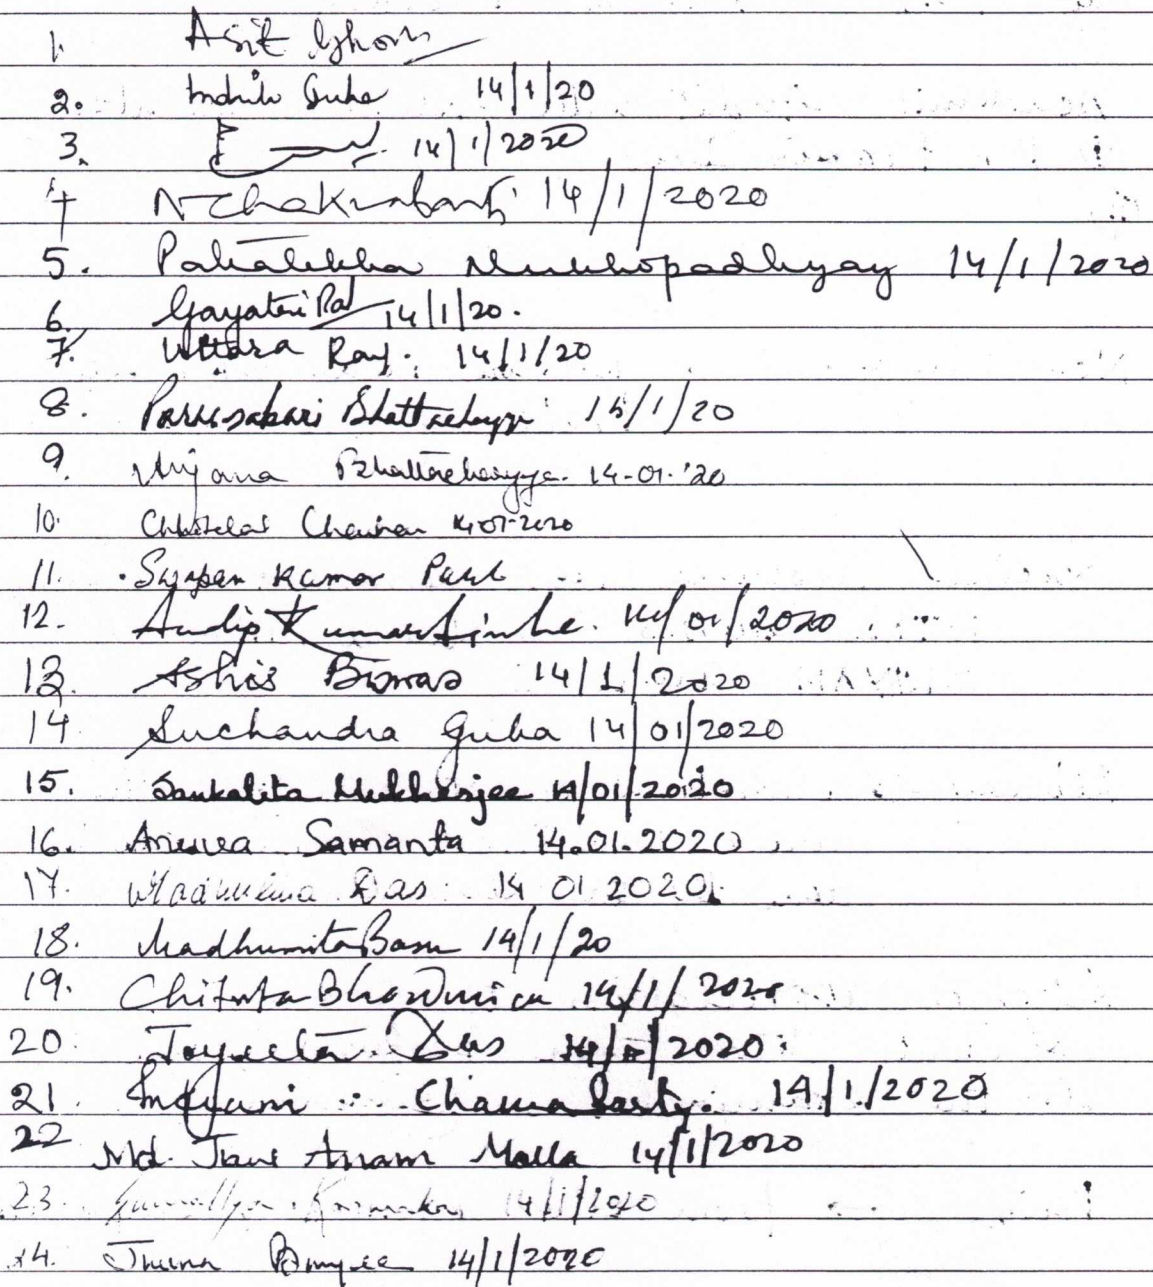 1. Asit Ghosh
2. Indrila Guha 14/1/20
3. 14/1/2020
4 N Chakrabarti 14/1/2020
5. Mukhopadhyay 14/1/2020
6. Gayatri Pal 14/1/20.
7. Uttara Ray. 14/1/20
8. Bhattacharyya 15/1/20
9. Bhattacharyya. 14-01-'20
10. 14-01-2020
11. Swapan Kumar Paul
12. Kumar Sinha. 14/01/2020
13. Ashis Biswas 14/1/2020
14 Suchandra Guha 14/01/2020
15. Sankalita Mukherjee 14/01/2020
16. Samanta 14.01.2020
17. Das 14 01 2020
18. Madhumita Basu 14/1/20
19. 14/1/2020
20. Joyeeta Das 2020
21. Chakraborty. 14/1/2020
22 Md. Anam Molla 14/1/2020
23. Karmakar 14/1/2020
24. Jhuma 14/1/2020